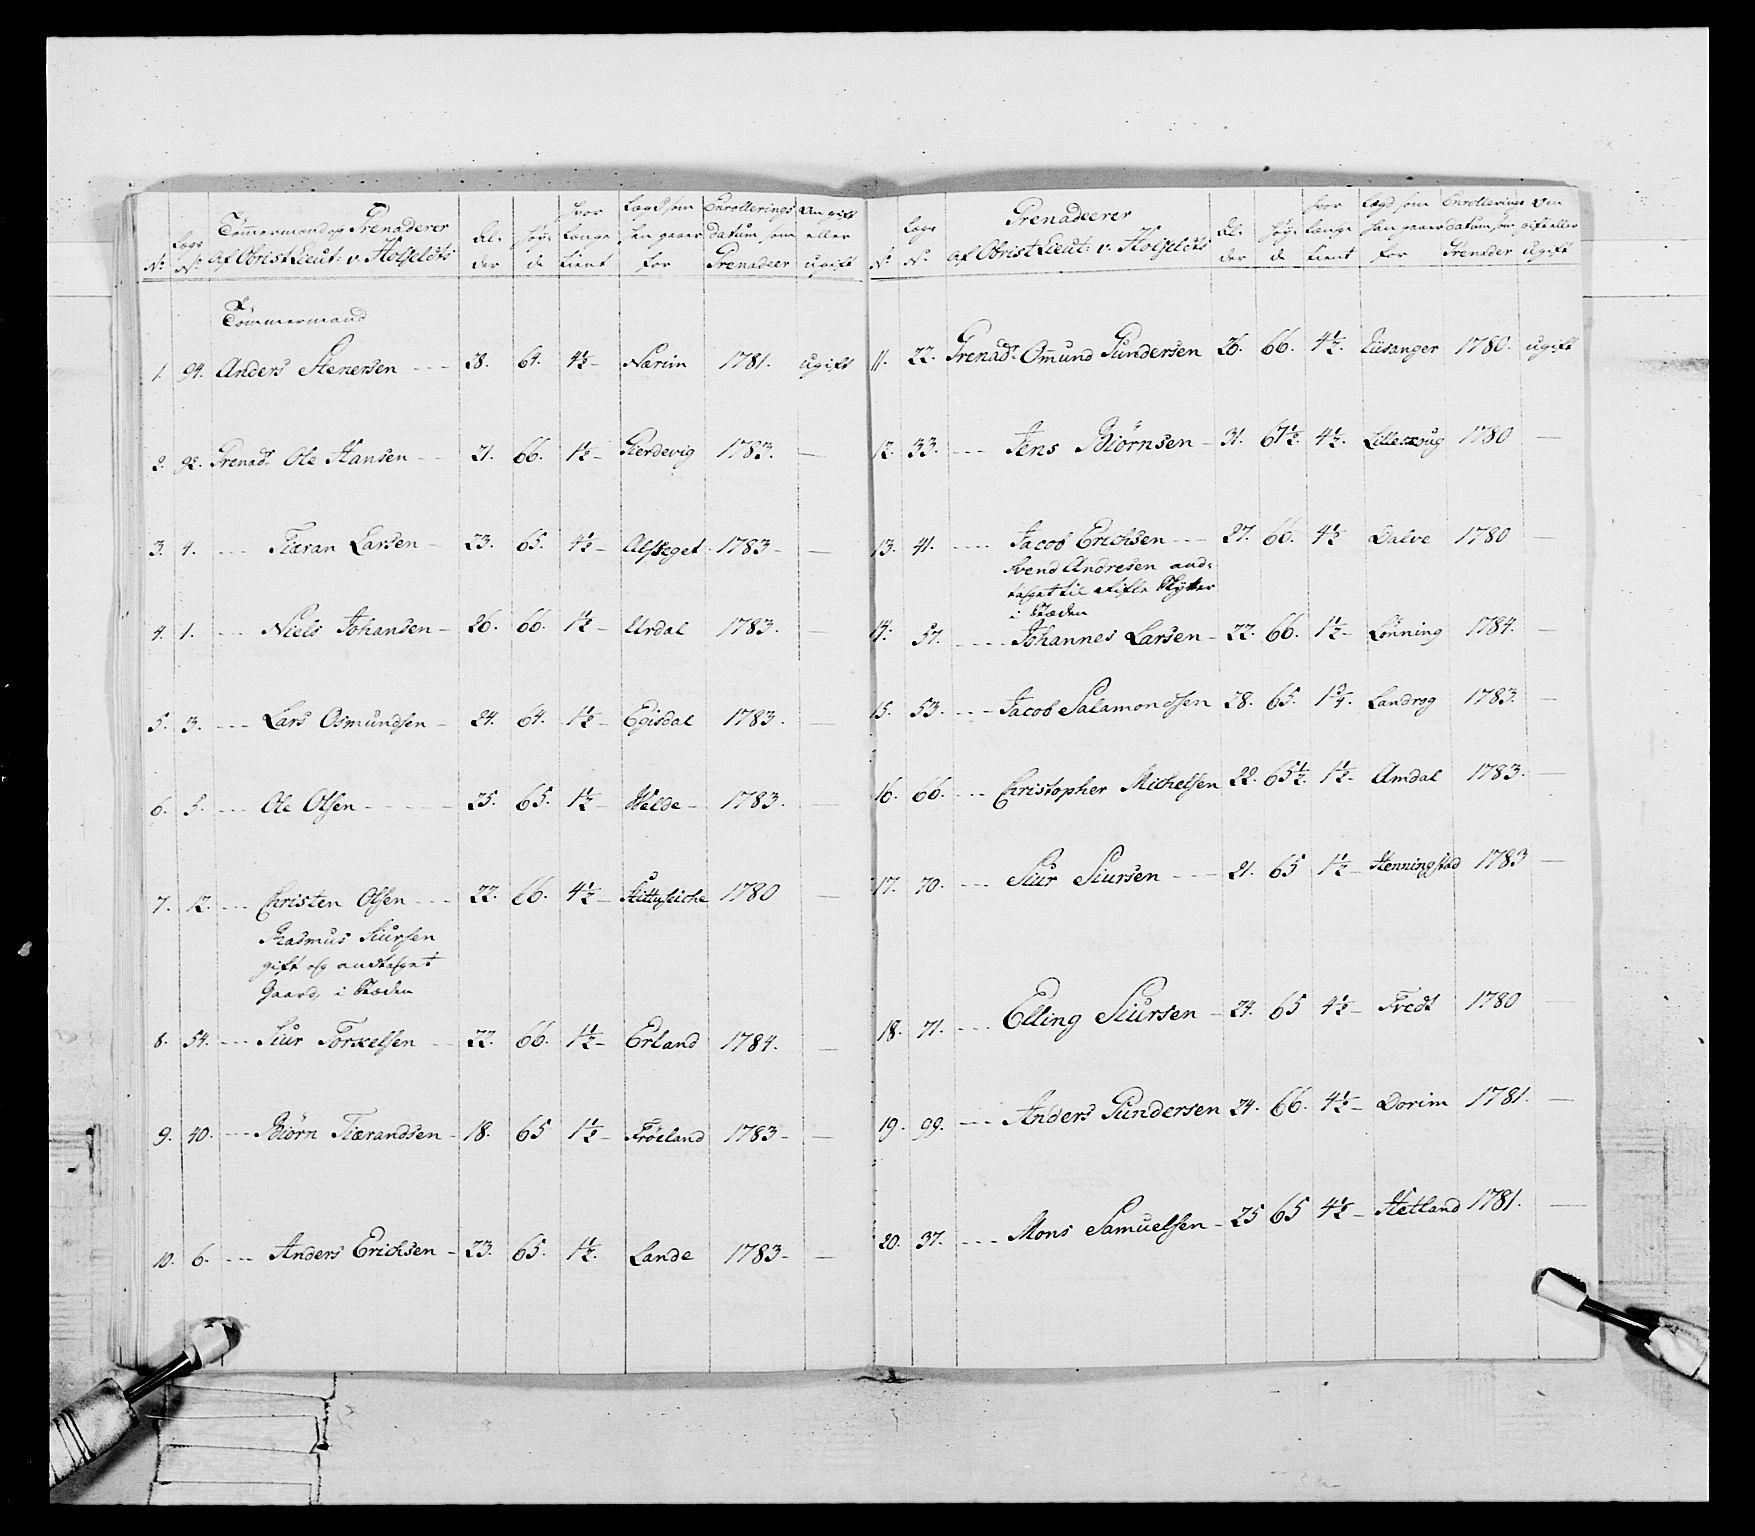 Tömmermand og Grenaderer
af Obrist Lieut: v. Holfeldts
N:
Lægs N:
Al-
der
Høy-
de
hvor
længe
tient
Lægd som
han gaaer
for
Enrollerings
Datum som
Grenadeer
Om gift
eller
ugift
Tömmermand
1. 94. Anders Stenersen --- 28. 64. 4½ - Nærim 1781. ugift
2. 92. Grenad: Ole Hansen --- 21. 66. 1½ - Gierdevig 1783. —
3. 4. --- Tiæran Larsen - 23. 65. 4½ - Alsseget 1783 - —
4. 1. --- Niels Johansen - 26. 66. 1½ - Urdal 1783. —
5. 3. --- Lars Osmundsen - 24. 64. 1½ - Egisdal 1783. —
6. 5. --- Ole Olsen --- 25. 65. 1½ - Welde - 1783. —
7. 12. --- Christen Olsen --- 22. 66. 4½ - 1780 —
Rasmus Siursen
gift og andtaget
Gaard, i Stæden
8. 54. --- Siur Torkelsen -- 22. 66. 1½ - Erland 1784. —
9. 40. --- Biörn Tiærandsen - 18. 65 1½ - Fröeland 1783 - —
10. 6. --- Anders Erichsen - 23. 65. 1½. Lande 1783 - —
Grenadeerer
af Obrist Lieut: v. Holfeldts
N:
Lægs
N:
Al-
der
Høy-
de
hvor
længe
tient
Lægd som
han gaaer
for
Enrollerings
Datum som
Grenader
Om
gift eller
ugift
11. 22. Grenad: Omund Gundersen 26. 66. 4½. Eusanger 1780. ugift
12. 33. --- Jens Biörnsen - 31. 67½. 4½. 1780 —
13. 41. --- Jacob Erichsen --- 27. 66. 4½ Dalve 1780 —
Svend Andresen and-
taget til Stifts Skytter
i Stæden
14. 57. --- Johannes Larsen - 22. 66. 1½ - Lönning 1784. —
15. 53. --- Jacob Salamonsen 28. 65. 1¾. Landrog 1783. —
16. 66. --- Christopher Michelsen 22. 65½. 1½ - Amdal 1783. —
17. 70. --- Siur Siursen --- 21. 65 1½ - Henningstad 1783 —
18. 71. --- Elling Siursen - 24. 65 4½ - Fvedt 1780
19. 99. --- Anders Gundersen 24. 66. 4½ - Dorim 1781. —
20. 37. --- Mons Samuelsen - 25 65 4½ - Hetland 1781. —